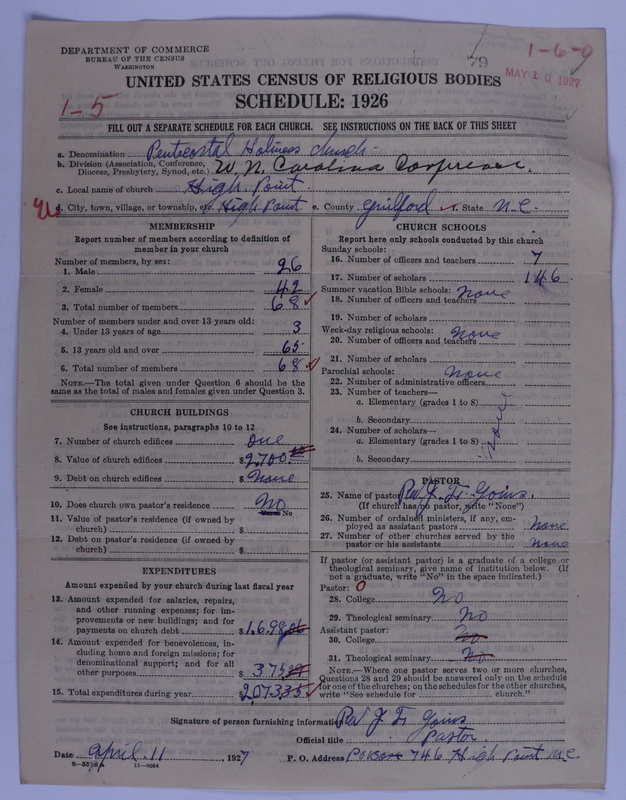 DEPARTMENT OF COMMERCE
BUREAU OF THE CENSUS
WASHINGTON
79
1-6-0
MAY 10 1927
UNITED STATES CENSUS OF RELIGIOUS BODIES
1-5
SCHEDULE: 1926
FILL OUT A SEPARATE SCHEDULE FOR EACH CHURCH. SEE INSTRUCTIONS ON THE BACK OF THIS SHEET
a. Denomination Pentecostal Holiness Church
b. Division (Association, Conference, Diocese, Presbytery, Synod, etc.) W. N. Carolina Conference
c. Local name of church High Point
d. City, town, village, or township, etc. High Point e. County Guilford f. State N.C.
MEMBERSHIP
Report number of members according to definition of
member in your church
Number of members, by sex:
1. Male 26
2. Female 42
3. Total number of members 68
Number of members under and over 13 years old:
4. Under 13 years of age 3
5. 13 years old and over 65
6. Total number of members 68
NOTE.—The total given under Question 6 should be the
same as the total of males and females given under Question 3.
CHURCH BUILDINGS
See instructions, paragraphs 10 to 12
7. Number of church edifices one
8. Value of church edifices $2,700.00
9. Debt on church edifices $None
10. Does church own pastor's residence No
Yes or No
11. Value of pastor's residence (if owned by
church) $
12. Debt on pastor's residence (if owned by
church) $
EXPENDITURES
Amount expended by your church during last fiscal year
13. Amount expended for salaries, repairs,
and other running expenses; for im-
provements or new buildings; and for
payments on church debt $1,698
14. Amount expended for benevolences, in-
cluding home and foreign missions; for
denominational support; and for all
other purposes $375
15. Total expenditures during year $2073.35
CHURCH SCHOOLS
Report here only schools conducted by this church
Sunday schools:
16. Number of officers and teachers 7
17. Number of scholars 146
Summer vacation Bible schools: None
18. Number of officers and teachers
19. Number of scholars
Week-day religious schools: None
20. Number of officers and teachers
21. Number of scholars
Parochial schools: None
22. Number of administrative officers
23. Number of teachers—
a. Elementary (grades 1 to 8)
b. Secondary
24. Number of scholars—
a. Elementary (grades 1 to 8)
b. Secondary
None
PASTOR
25. Name of pastor Rev J. F. Goins.
(If church has no pastor, write "None")
26. Number of ordained ministers, if any, em-
ployed as assistant pastors None
27. Number of other churches served by the
pastor or his assistants None
If pastor (or assistant pastor) is a graduate of a college or
theological seminary, give name of institution below. (If
not a graduate, write "No" in the space indicated.)
Pastor: 0
28. College No
29. Theological seminary No
Assistant pastor:
30. College No
31. Theological seminary No
NOTE.—Where one pastor serves two or more churches,
Questions 28 and 29 should be answered only on the schedule
for one of the churches; on the schedules for the other churches,
write "See schedule for church."
Signature of person furnishing information Rev J. F. Goins
Official title Pastor.
Date April 11, 1927 P. O. Address P.O. Box 746 High Point N.C.
11-9054